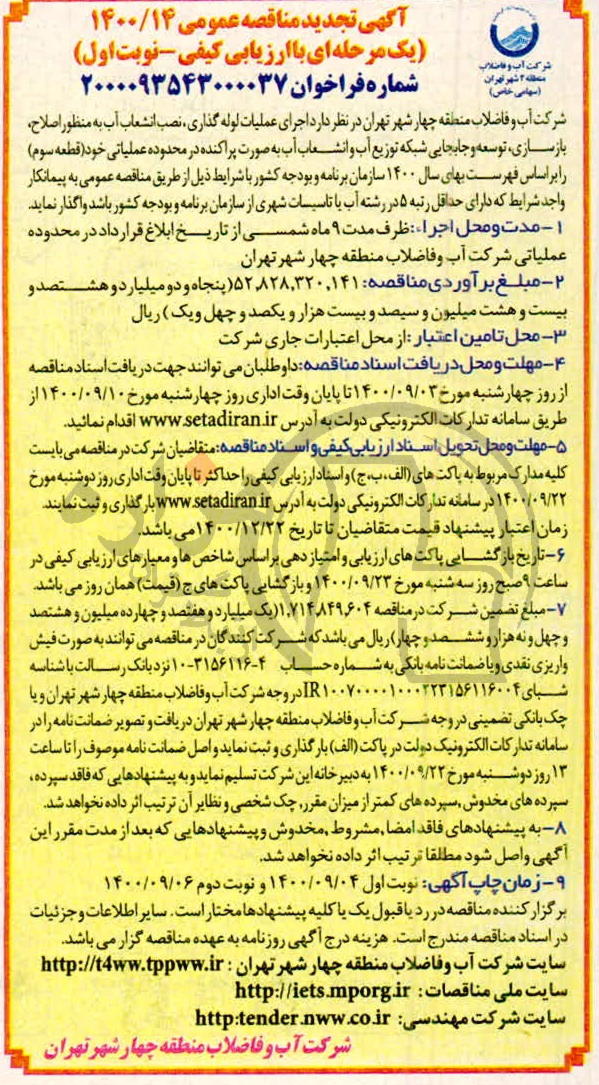 آگهی تجدید مناقصه عمومی ۱۴۰۰/۱۴
(یک مرحله‌ای با ارزیابی کیفی – نوبت اول)
شماره فراخوان ۲۰۰۰۰۹۳۵۴۳۰۰۰۰۳۷
شرکت آب و فاضلاب
منطقه ۴ شهر تهران
(سهامی خاص)
شرکت آب و فاضلاب منطقه چهار شهر تهران در نظر دارد اجرای عملیات لوله گذاری، نصب انشعاب آب به منظور اصلاح،
بازسازی، توسعه و جابجایی شبکه توزیع آب و انشعاب آب به صورت پراکنده در محدوده عملیاتی خود (قطعه سوم)
را بر اساس فهرست بهای سال ۱۴۰۰ سازمان برنامه و بودجه کشور با شرایط ذیل از طریق مناقصه عمومی به پیمانکار
واجد شرایط که دارای حداقل رتبه ۵ در رشته آب یا تاسیسات شهری از سازمان برنامه و بودجه کشور باشد واگذار نماید.
۱- مدت و محل اجراء: ظرف مدت ۹ ماه شمسی از تاریخ ابلاغ قرارداد در محدوده
عملیاتی شرکت آب وفاضلاب منطقه چهار شهر تهران
۲- مبلغ برآوردی مناقصه: ۵۲,۸۲۸,۳۲۰,۱۴۱ (پنجاه و دو میلیارد و هشتصد و
بیست و هشت میلیون و سیصد و بیست هزار و یکصد و چهل و یک) ریال
۳- محل تامین اعتبار: از محل اعتبارات جاری شرکت
۴- مهلت و محل دریافت اسناد مناقصه: داوطلبان می توانند جهت دریافت اسناد مناقصه
از روز چهارشنبه مورخ ۱۴۰۰/۰۹/۰۳ تا پایان وقت اداری روز چهارشنبه مورخ ۱۴۰۰/۰۹/۱۰ از
طریق سامانه تدارکات الکترونیکی دولت به آدرس www.setadiran.ir اقدام نمائید.
۵- مهلت و محل تحویل اسناد ارزیابی کیفی و اسناد مناقصه: متقاضیان شرکت در مناقصه می بایست
کلیه مدارک مربوط به پاکت های (الف، ب، ج) و اسناد ارزیابی کیفی را حداکثر تا پایان وقت اداری روز دوشنبه مورخ
۱۴۰۰/۰۹/۲۲ در سامانه تدارکات الکترونیکی دولت به آدرس www.setadiran.ir بارگذاری و ثبت نمایند.
زمان اعتبار پیشنهاد قیمت متقاضیان تا تاریخ ۱۴۰۰/۱۲/۲۲ می باشد.
۶- تاریخ بازگشایی پاکت های ارزیابی و امتیاز دهی بر اساس شاخص ها و معیارهای ارزیابی کیفی در
ساعت ۹ صبح روز سه شنبه مورخ ۱۴۰۰/۰۹/۲۳ و بازگشایی پاکت های ج (قیمت) همان روز می باشد.
۷- مبلغ تضمین شرکت در مناقصه ۱,۷۱۴,۸۴۹,۶۰۴ (یک میلیارد و هفتصد و چهارده میلیون و هشتصد
و چهل و نه هزار و ششصد و چهار) ریال می باشد که شرکت کنندگان در مناقصه می توانند به صورت فیش
واریزی نقدی و یا ضمانت نامه بانکی به شماره حساب ۴-۳۱۵۶۱۱۶-۱۰ نزد بانک رسالت با شناسه
شبای IR۱۰۰۷۰۰۰۰۱۰۰۰۲۲۳۱۵۶۱۱۶۰۰۴ در وجه شرکت آب و فاضلاب منطقه چهار شهر تهران و یا
چک بانکی تضمینی در وجه شرکت آب و فاضلاب منطقه چهار شهر تهران دریافت و تصویر ضمانت نامه را در
سامانه تدارکات الکترونیک دولت در پاکت (الف) بارگذاری و ثبت نماید و اصل ضمانت نامه موصوف را تا ساعت
۱۳ روز دوشنبه مورخ ۱۴۰۰/۰۹/۲۲ به دبیرخانه این شرکت تسلیم نماید و به پیشنهادهایی که فاقد سپرده،
سپرده های مخدوش، سپرده های کمتر از میزان مقرر، چک شخصی و نظایر آن ترتیب اثر داده نخواهد شد.
۸- به پیشنهادهای فاقد امضا، مشروط، مخدوش و پیشنهادهایی که بعد از مدت مقرر این
آگهی واصل شود مطلقا ترتیب اثر داده نخواهد شد.
۹- زمان چاپ آگهی: نوبت اول ۱۴۰۰/۰۹/۰۴ و نوبت دوم ۱۴۰۰/۰۹/۰۶
برگزار کننده مناقصه در رد یا قبول یک یا کلیه پیشنهادها مختار است. سایر اطلاعات و جزئیات
در اسناد مناقصه مندرج است. هزینه درج آگهی روزنامه به عهده مناقصه گزار می باشد.
سایت شرکت آب وفاضلاب منطقه چهار شهر تهران: http://t4ww.tppww.ir
سایت ملی مناقصات: http://iets.mporg.ir
سایت شرکت مهندسی: http:tender.nww.co.ir
شرکت آب و فاضلاب منطقه چهار شهر تهران